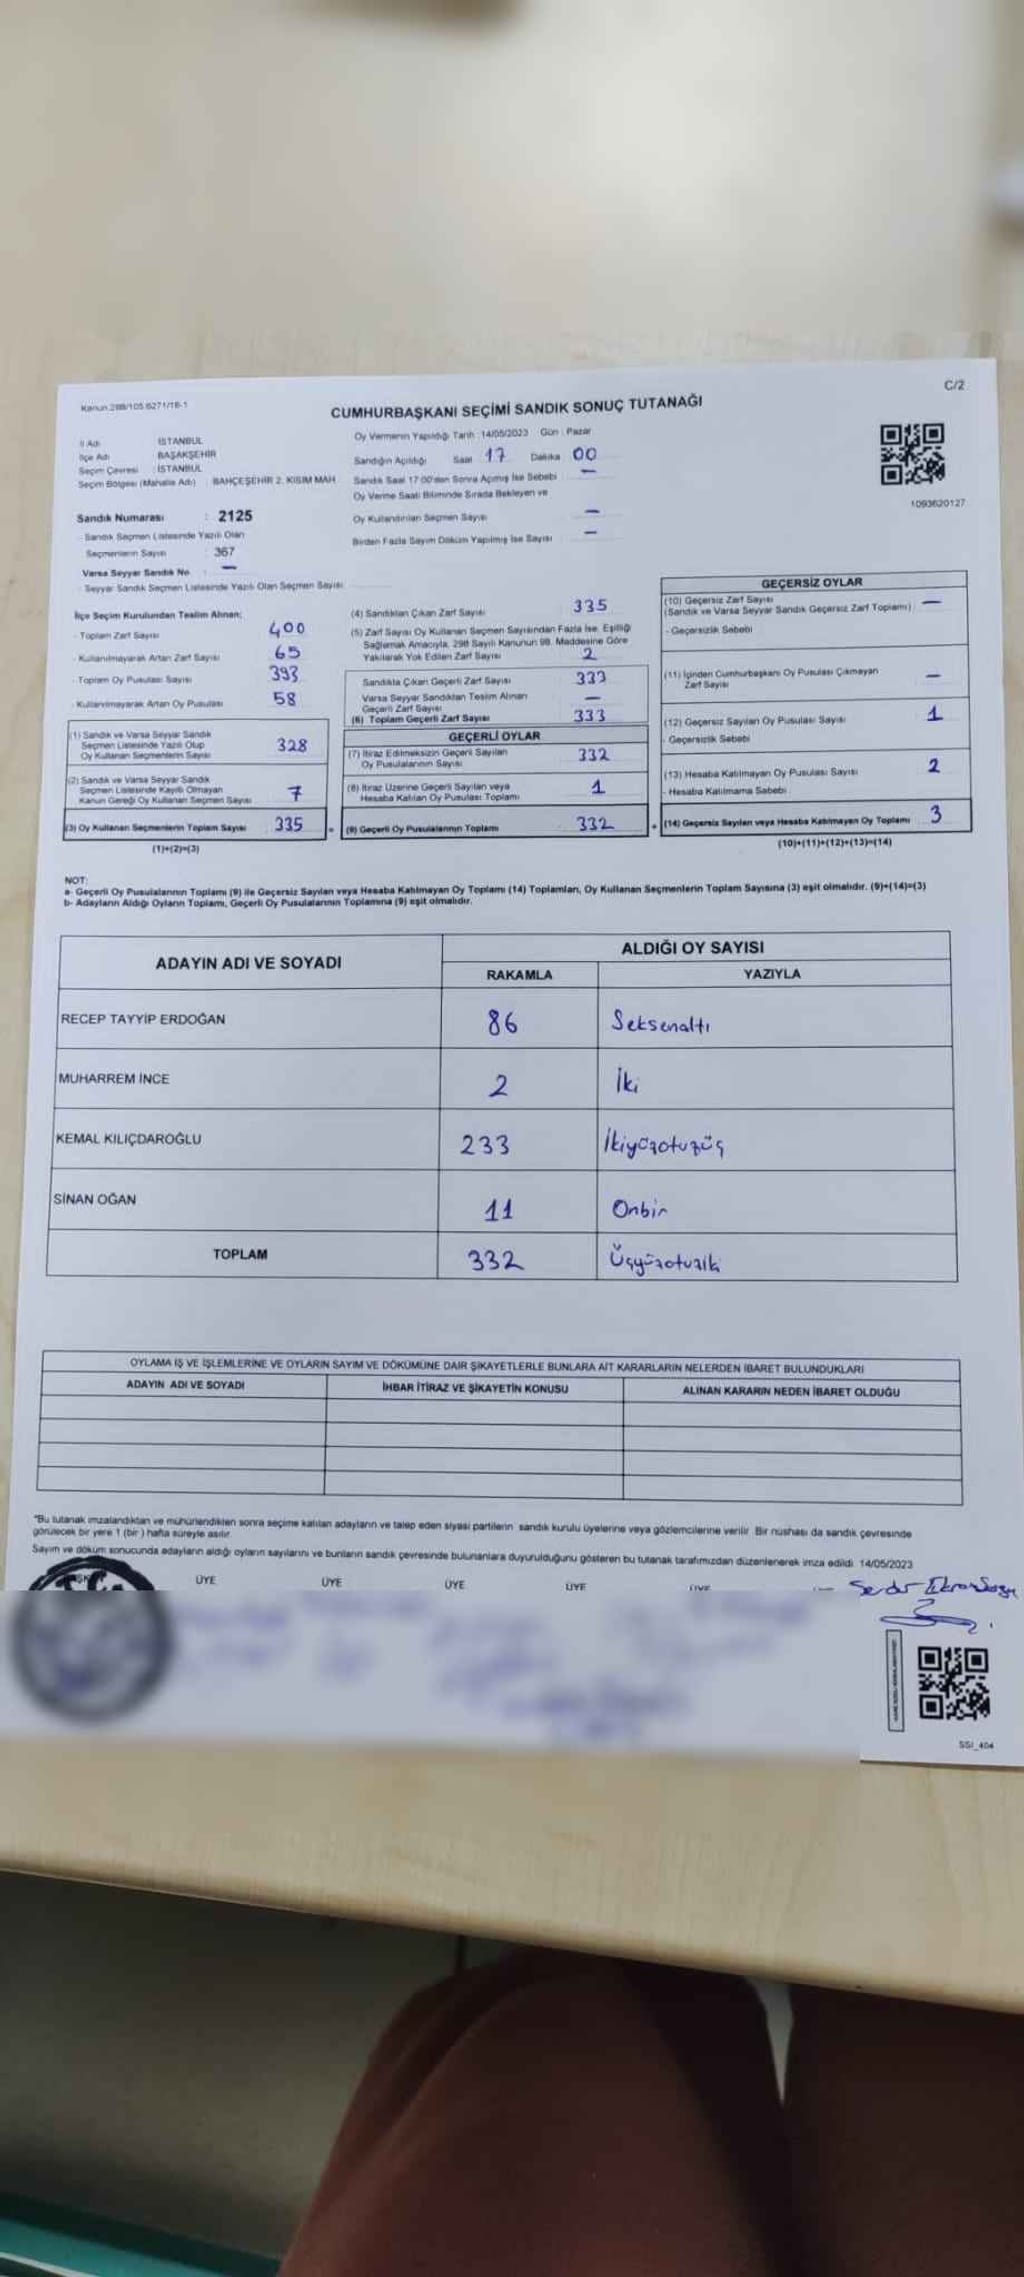 Kanun.298/105.6271/18-1
C/2
CUMHURBAŞKANI SEÇİMİ SANDIK SONUÇ TUTANAĞI
İl Adı : İSTANBUL
İlçe Adı : BAŞAKŞEHİR
Seçim Çevresi : İSTANBUL
Seçim Bölgesi (Mahalle Adı) : BAHÇEŞEHİR 2. KISIM MAH.
Sandık Numarası : 2125
- Sandık Seçmen Listesinde Yazılı Olan
Seçmenlerin Sayısı : 367
Varsa Seyyar Sandık No : —
- Seyyar Sandık Seçmen Listesinde Yazılı Olan Seçmen Sayısı:
Oy Vermenin Yapıldığı Tarih :14/05/2023 Gün : Pazar
Sandığın Açıldığı Saat 17 Dakika 00
Sandık Saat 17:00'den Sonra Açılmış İse Sebebi —
Oy Verme Saati Bitiminde Sırada Bekleyen ve
Oy Kullandırılan Seçmen Sayısı —
Birden Fazla Sayım Döküm Yapılmış İse Sayısı —
1093620127
İlçe Seçim Kurulundan Teslim Alınan;
- Toplam Zarf Sayısı 400
- Kullanılmayarak Artan Zarf Sayısı 65
- Toplam Oy Pusulası Sayısı 393
- Kullanılmayarak Artan Oy Pusulası 58
(1) Sandık ve Varsa Seyyar Sandık
Seçmen Listesinde Yazılı Olup
Oy Kullanan Seçmenlerin Sayısı 328
(2) Sandık ve Varsa Seyyar Sandık
Seçmen Listesinde Kayıtlı Olmayan
Kanun Gereği Oy Kullanan Seçmen Sayısı 7
(3) Oy Kullanan Seçmenlerin Toplam Sayısı 335
(1)+(2)=(3)
(4) Sandıktan Çıkan Zarf Sayısı 335
(5) Zarf Sayısı Oy Kullanan Seçmen Sayısından Fazla İse, Eşitliği
Sağlamak Amacıyla, 298 Sayılı Kanunun 98. Maddesine Göre
Yakılarak Yok Edilen Zarf Sayısı 2
Sandıkta Çıkan Geçerli Zarf Sayısı 333
Varsa Seyyar Sandıktan Teslim Alınan
Geçerli Zarf Sayısı —
(6) Toplam Geçerli Zarf Sayısı 333
GEÇERLİ OYLAR
(7) İtiraz Edilmeksizin Geçerli Sayılan
Oy Pusulalarının Sayısı 332
(8) İtiraz Üzerine Geçerli Sayılan veya
Hesaba Katılan Oy Pusulası Toplamı 1
(9) Geçerli Oy Pusulalarının Toplamı 332
GEÇERSİZ OYLAR
(10) Geçersiz Zarf Sayısı
(Sandık ve Varsa Seyyar Sandık Geçersiz Zarf Toplamı) —
- Geçersizlik Sebebi
(11) İçinden Cumhurbaşkanı Oy Pusulası Çıkmayan
Zarf Sayısı —
(12) Geçersiz Sayılan Oy Pusulası Sayısı 1
- Geçersizlik Sebebi
(13) Hesaba Katılmayan Oy Pusulası Sayısı 2
- Hesaba Katılmama Sebebi
(14) Geçersiz Sayılan veya Hesaba Katılmayan Oy Toplamı 3
(10)+(11)+(12)+(13)=(14)
NOT:
a- Geçerli Oy Pusulalarının Toplamı (9) ile Geçersiz Sayılan veya Hesaba Katılmayan Oy Toplamı (14) Toplamları, Oy Kullanan Seçmenlerin Toplam Sayısına (3) eşit olmalıdır. (9)+(14)=(3)
b- Adayların Aldığı Oyların Toplamı, Geçerli Oy Pusulalarının Toplamına (9) eşit olmalıdır.
ADAYIN ADI VE SOYADI
ALDIĞI OY SAYISI
RAKAMLA YAZIYLA
RECEP TAYYİP ERDOĞAN 86 Seksenaltı
MUHARREM İNCE 2 İki
KEMAL KILIÇDAROĞLU 233 İkiyüzotuzüç
SİNAN OĞAN 11 Onbir
TOPLAM 332 Üçyüzotuziki
OYLAMA İŞ VE İŞLEMLERİNE VE OYLARIN SAYIM VE DÖKÜMÜNE DAİR ŞİKAYETLERLE BUNLARA AİT KARARLARIN NELERDEN İBARET BULUNDUKLARI
ADAYIN ADI VE SOYADI İHBAR İTİRAZ VE ŞİKAYETİN KONUSU ALINAN KARARIN NEDEN İBARET OLDUĞU
"Bu tutanak imzalandıktan ve mühürlendikten sonra seçime katılan adayların ve talep eden siyasi partilerin sandık kurulu üyelerine veya gözlemcilerine verilir. Bir nüshası da sandık çevresinde
görülecek bir yere 1 (bir) hafta süreyle asılır.
Sayım ve döküm sonucunda adayların aldığı oyların sayılarını ve bunların sandık çevresinde bulunanlara duyurulduğunu gösteren bu tutanak tarafımızdan düzenlenerek imza edildi. 14/05/2023
ÜYE ÜYE ÜYE ÜYE
SSI_404